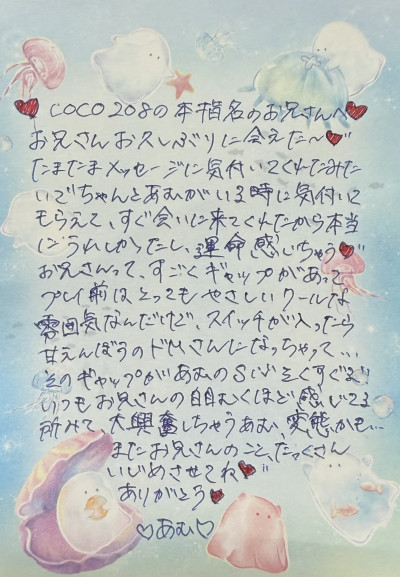 ♥COCO208の本指名のお兄さんへ♥
お兄さんお久しぶりに会えた〜♥
たまたまメッセージに気付いてくれたみた
いでちゃんとあむがいる時に気付いて
もらえて、すぐ会いに来てくれたから本当
にうれしかったし、運命感じちゃう♥
お兄さんって、すごくギャップがあって
プレイ前はとってもやさしいクールな
雰囲気なんだけど、スイッチが入ったら
甘えんぼうのドMさんになっちゃって...
そのギャップがあむのS心をくすぐる♡
いつもお兄さんの白目むくほど感じてる
所みて、大興奮しちゃうあむ、変態かも...
またお兄さんのこと、たっくさん
いじめさせてね♥
ありがとう♥
♡あむ♡